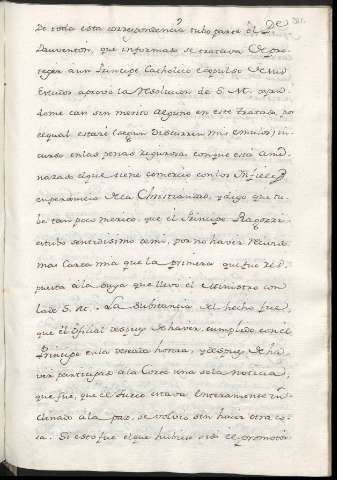 De toda esta correspondencia tubo parte el P.e
Dauventon, que informado se tratava de pro-
teger a un Principe Catholico expulso de sus
Estados aprovò la resolucion de S. M. ayudan-
dome tan sin merito alguno en este tratado, por
el qual estarè (segun discurren mis emulos) in-
curso en las penas rigurosas con que està ame-
nazado el que tiene comercio con los Infieles
en perjuicio de la Christiandad, y digo que tu-
be tan poco merito, que el Principe Ragozzi
estubo sentidissimo de mi, por no haver recivido
mas Carta mia que la primera que fue res-
puesta a la suya que llevò el Ministro con
la de S. M. La substancia del hecho fue,
que el oficial despues de haver cumplido con el
Principe en la devida forma, y despues de ha-
ver participado a la Corte una sola noticia,
que fue, que el Turco estava enteramente in-
clinado a la paz, se volviò sin hacer otra co-
sa. Si esto fue el que hubiese sido el promotor